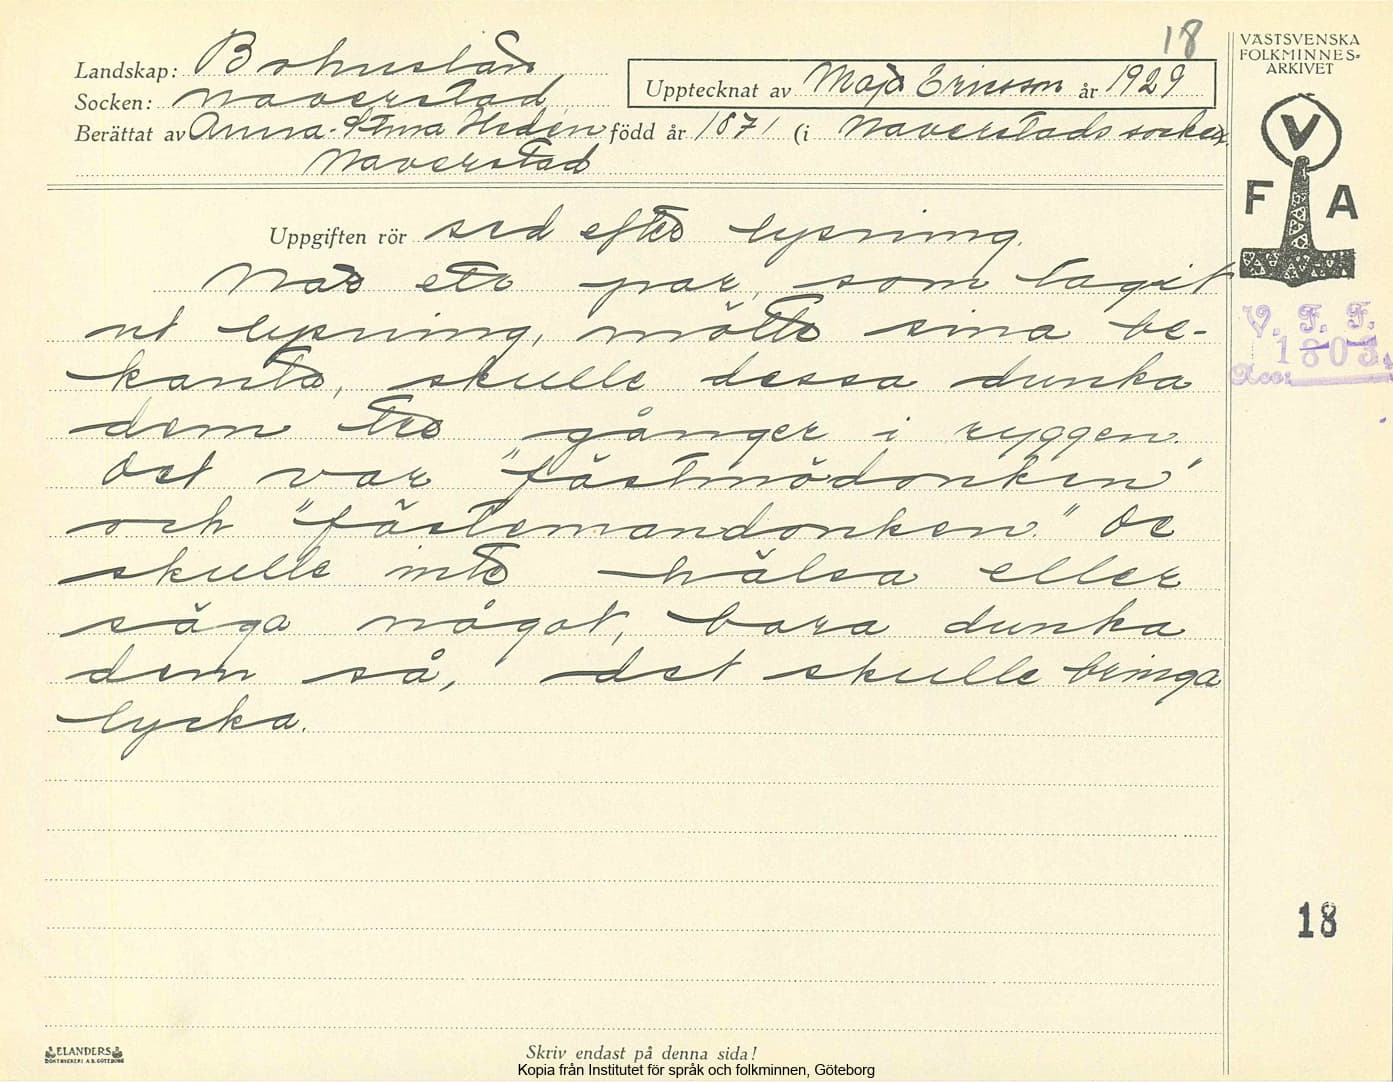 18
Landskap: Bohuslän
Socken: Naverstad
Upptecknat av Maja Ericson år 1929
Berättat av Anna-Stina Hedén född år 1871 (i Naverstads socken
Naverstad
Uppgiften rör sed efter lysning.
När ett par, som tagit
ut lysning, mötte sina be-
kanta, skulle dessa dunka
dem tre gånger i ryggen.
Det var "fästmödonken"
och "fästemandonken." De
skulle inte hälsa eller
säga något, bara dunka
dem så, det skulle bringa
lycka.
VÄSTSVENSKA
FOLKMINNES-
ARKIVET
V
F A
V. F. F.
1803
Acc:
18
ELANDERS
BOKTRYCKERI A.B. GÖTEBORG
Skriv endast på denna sida!
Kopia från Institutet för språk och folkminnen, Göteborg